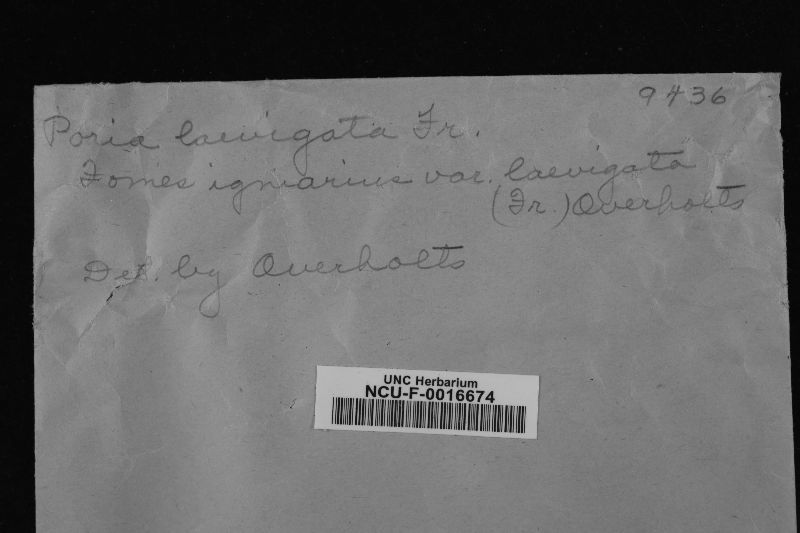 9436
Poria laevigata Fr.
Fomes igniarius var. laevigata
(Fr.) Overholts
Det. by Overholts
UNC Herbarium
NCU-F-0016674